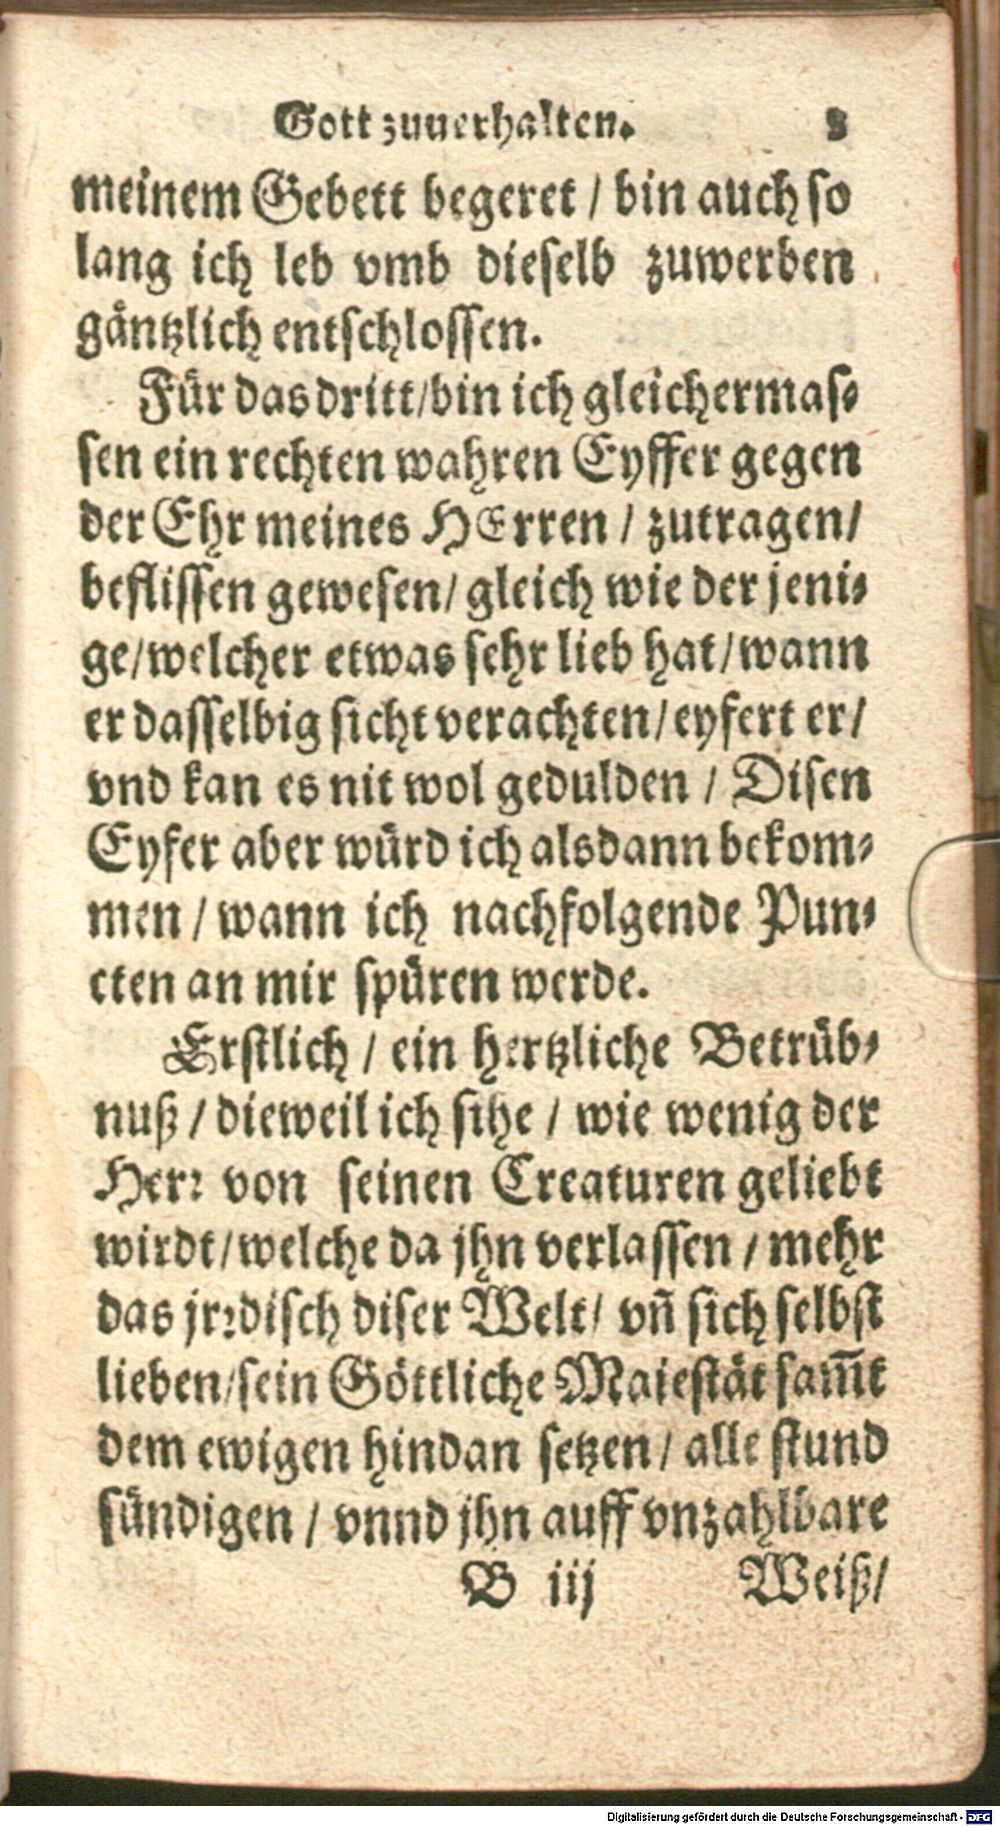 Gott zuuerhalten. 3
meinem Gebett begeret / bin auch so
lang ich leb vmb dieselb zuwerben
gäntzlich entschlossen.
Für das dritt / bin ich gleichermas⸗
sen ein rechten wahren Eyffer gegen
der Ehr meines HErren / zutragen /
beflissen gewesen / gleich wie der jeni⸗
ge / welcher etwas sehr lieb hat / wann
er dasselbig sicht verachten / eyfert er /
vnd kan es nit wol gedulden / Disen
Eyfer aber würd ich alsdann bekom⸗
men / wann ich nachfolgende Pun⸗
cten an mir spüren werde.
Erstlich / ein hertzliche Betrüb⸗
nuß / dieweil ich sihe / wie wenig der
Herꝛ von seinen Creaturen geliebt
wirdt / welche da jhn verlassen / mehr
das jrꝛdisch diser Welt / vn̄ sich selbst
lieben / sein Göttliche Maiestät sam̄t
dem ewigen hindan setzen / alle stund
sündigen / vnnd jhn auff vnzahlbare
B iij Weiß /
Digitalisierung gefördert durch die Deutsche Forschungsgemeinschaft - DFG